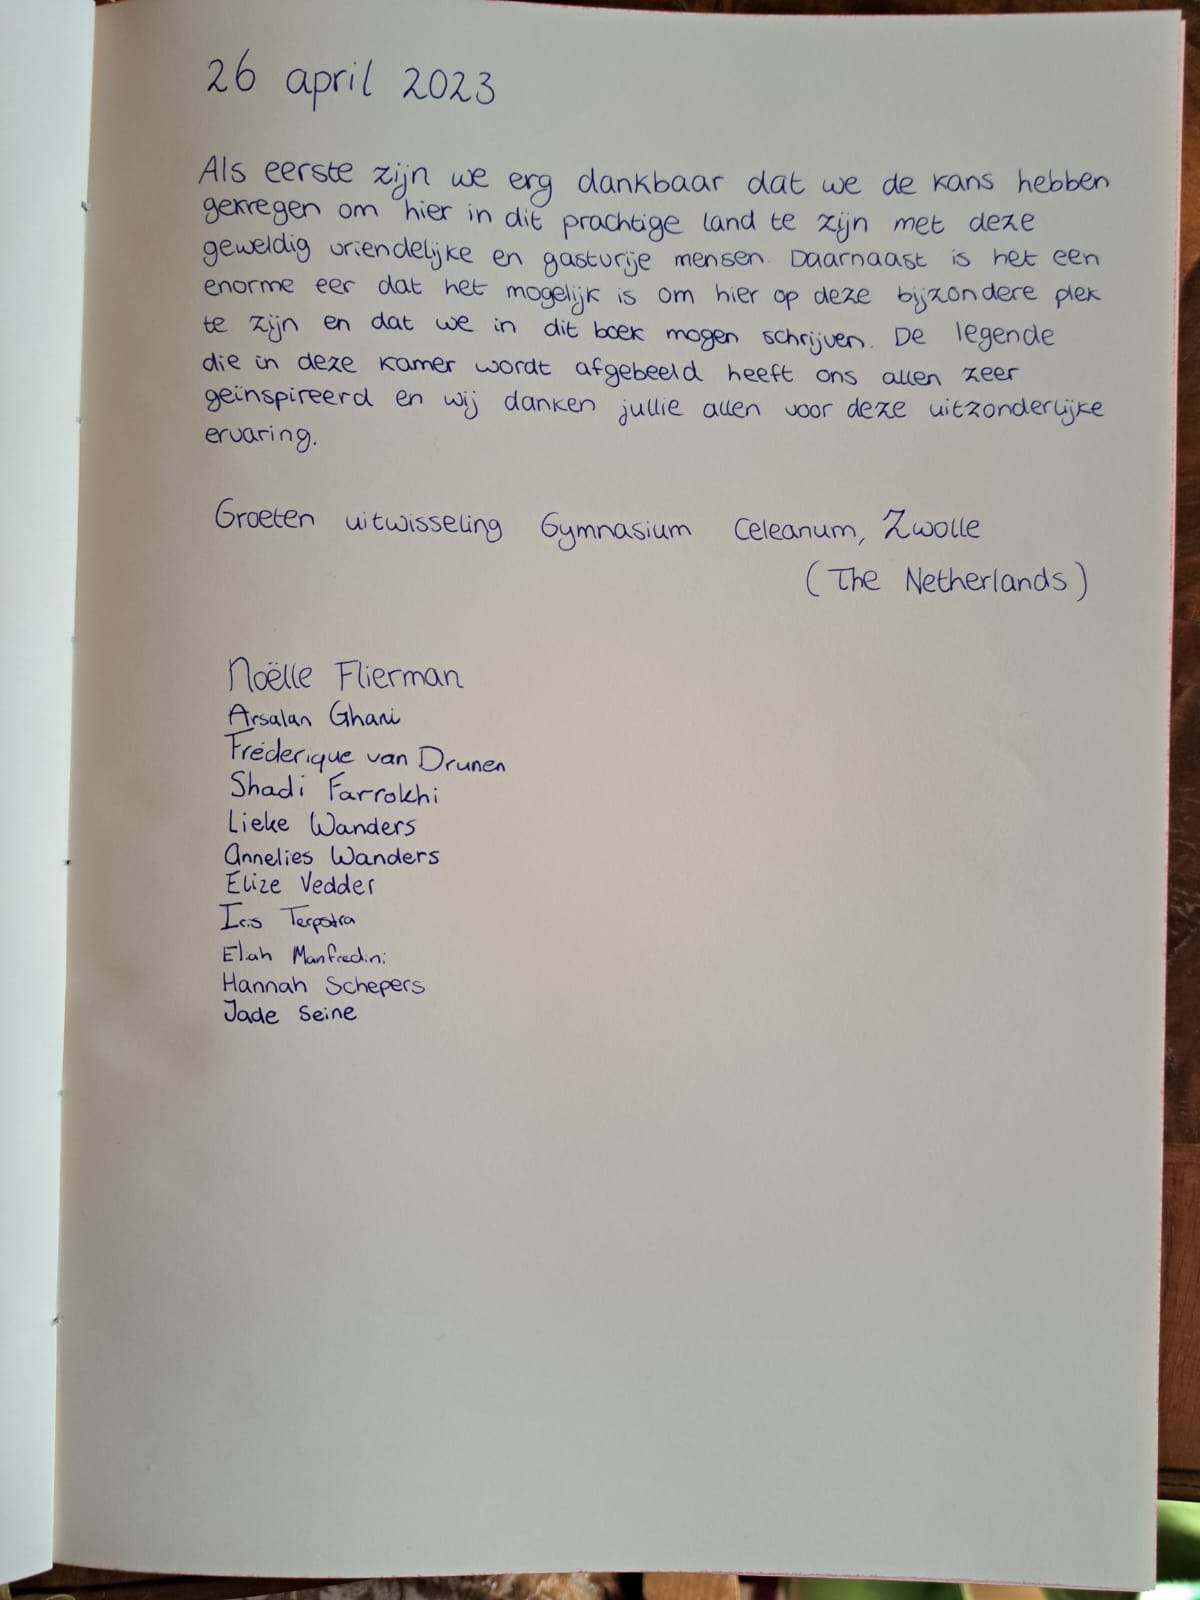 26 april 2023
Als eerste zijn we erg dankbaar dat we de kans hebben
gekregen om hier in dit prachtige land te zijn met deze
geweldig vriendelijke en gastvrije mensen. Daarnaast is het een
enorme eer dat het mogelijk is om hier op deze bijzondere plek
te zijn en dat we in dit boek mogen schrijven. De legende
die in deze kamer wordt afgebeeld heeft ons allen zeer
geïnspireerd en wij danken jullie allen voor deze uitzonderlijke
ervaring.
Groeten uitwisseling Gymnasium Celeanum, Zwolle
(The Netherlands)
Noëlle Flierman
Arsalan Ghani
Fréderique van Drunen
Shadi Farrokhi
Lieke Wanders
Annelies Wanders
Elize Vedder
Iris Terpstra
Eliah Manfredini
Hannah Schepers
Jade Seine